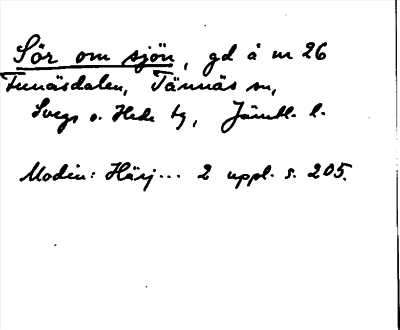 Sör om sjön, gd å nr 26
Funäsdalen, Tännäs sn,
Svegs o. Hede tg, Jämtl. l.
Modin: Härj... 2 uppl. s. 205.